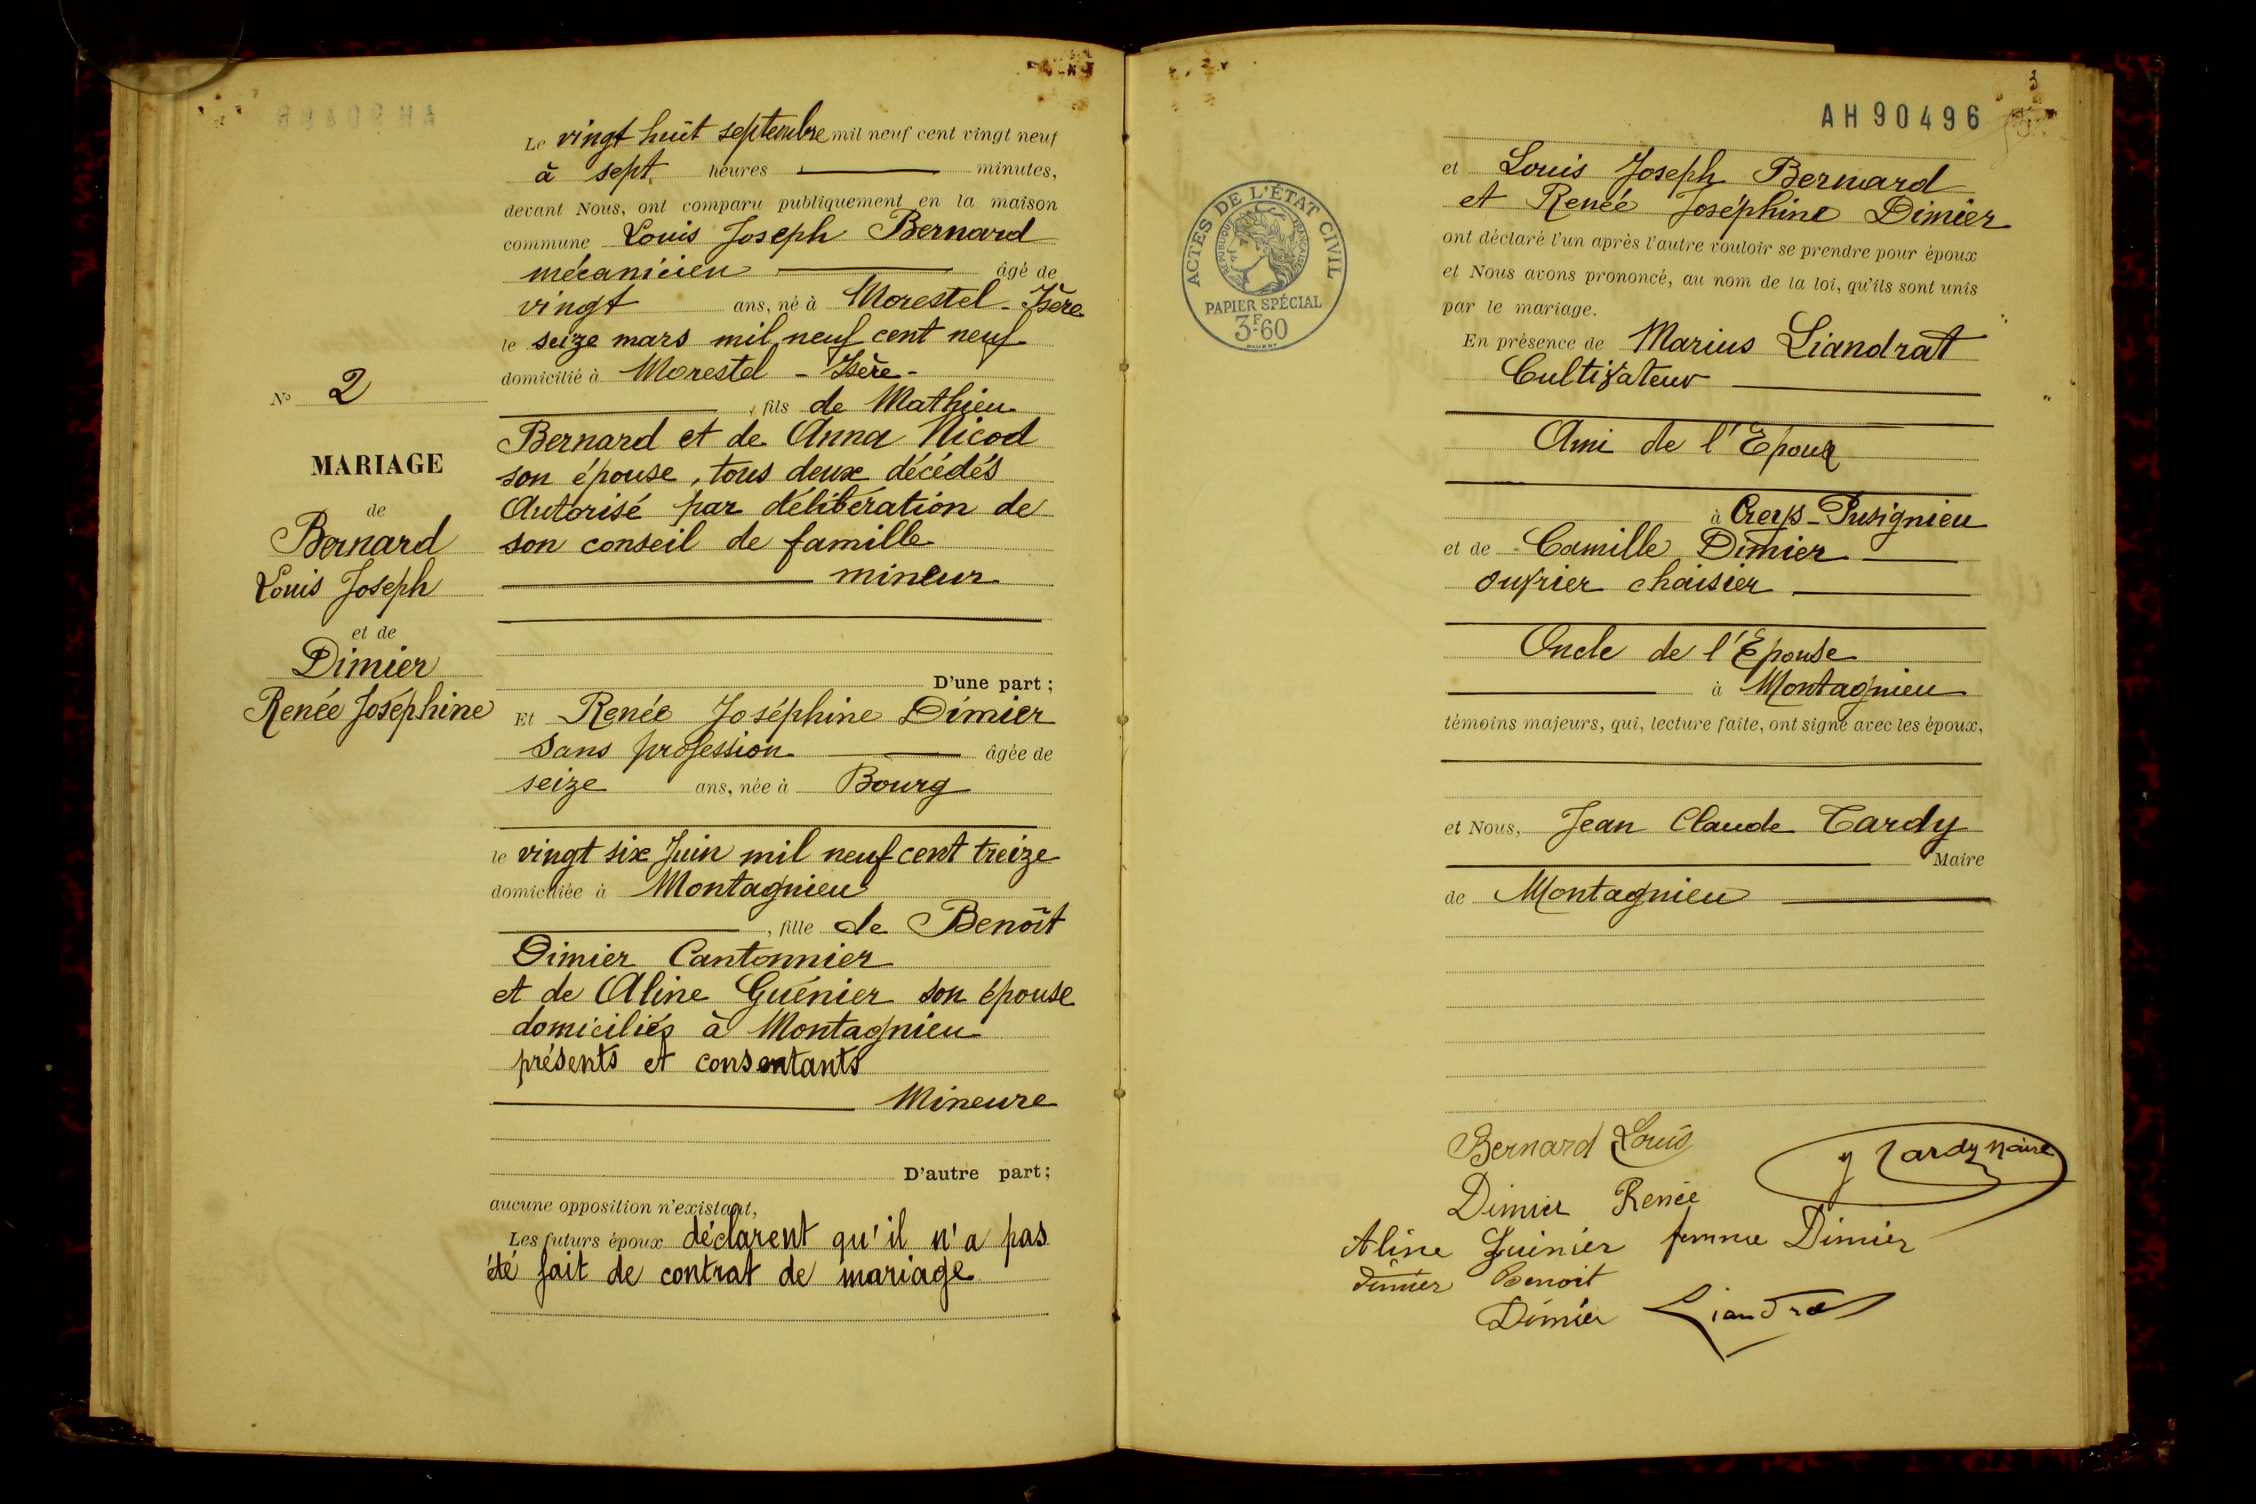 Le vingt huit septembre mil neuf cent vingt neuf
à sept heures minutes,
devant Nous, ont comparu publiquement en la maison
commune Louis Joseph Bernard
mécanicien âgé de
vingt ans, né à Morestel - Isère
le seize mars mil neuf cent neuf
domicilié à Morestel - Isère -
, fils de Mathieu
Bernard et de Anna Nicod
son épouse, tous deux décédés
Autorisé par délibération de
son conseil de famille
mineur
D'une part ;
Et Renée Joséphine Dimier
Sans profession âgée de
seize ans, née à Bourg
le vingt six Juin mil neuf cent treize
domiciliée à Montagnieu
, fille de Benoît
Dimier Cantonnier
et de Aline Guénier son épouse
domiciliés à Montagnieu
présents et consentants
Mineure
D'autre part ;
aucune opposition n'existant,
Les futurs époux déclarent qu'il n'a pas
été fait de contrat de mariage
No 2
MARIAGE
de
Bernard
Louis Joseph
et de
Dimier
Renée Joséphine
3
AH90496
ACTES DE L'ÉTAT CIVIL
RÉPUBLIQUE FRANÇAISE
PAPIER SPÉCIAL
3F60
et Louis Joseph Bernard
et Renée Joséphine Dimier
ont déclaré l'un après l'autre vouloir se prendre pour époux
et Nous avons prononcé, au nom de la loi, qu'ils sont unis
par le mariage.
En présence de Marius Liandrat
Cultivateur
Ami de l'Epoux
à Creys-Pusignieu
et de Camille Dimier
ouvrier chaisier
Oncle de l'Epouse
à Montagnieu
témoins majeurs, qui, lecture faite, ont signé avec les époux,
et Nous, Jean Claude Tardy
Maire
de Montagnieu
Bernard Louis
Tardy Maire
Dimier Renée
Aline Guinier femme Dimier
Dimier Benoit
Dimier Liandrat